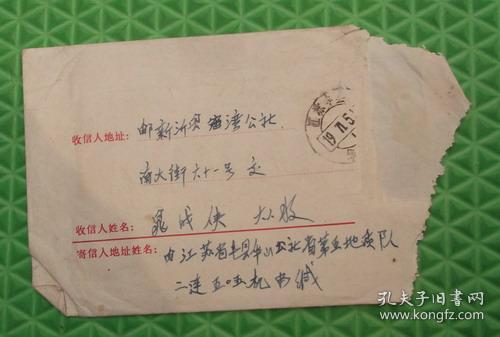 收信人地址: 邮新沂县窑湾公社
南大街六十一号交
收信人姓名: 成侠 大人收
寄信人地址姓名: 由江苏省丰县华山公社省第五地质队
二连五〇五机 书缄
孔夫子旧书网
www.kongfz.com